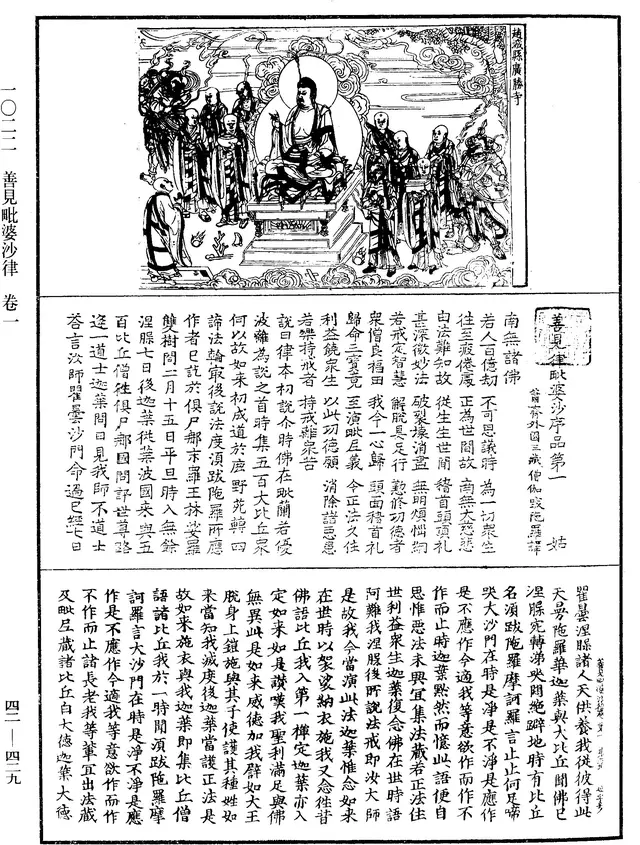 一〇二二 善見毗婆沙律 卷一
四二—四二九
趙城縣廣勝寺
善見律毗婆沙序品第一 姑
蕭齊外國三藏僧伽跋陀羅譯
南無諸佛
若人百億劫 不可思議時 為一切眾生
往至疲倦處 正為世間故 南無大慈悲
白法難知故 從生生世間 稽首頭頂禮
甚深微妙法 破裂壞消盡 無明煩惱網
若戒定智慧 解脫具足行 勤修功德者
眾僧良福田 我今一心歸 頭面稽首禮
歸命三寶竟 至演毗尼義 令正法久住
利益饒眾生 以此功德願 消除諸惡患
若樂持戒者 持戒離眾苦
說曰律本初說尒時佛在毗蘭若優
波離為說之首時集五百大比丘眾
何以故如來初成道於鹿野苑轉四
諦法輪最後說法度須跋陀羅所應
作者已訖於俱尸那末羅王林娑羅
雙樹間二月十五日平旦時入無餘
涅槃七日後迦葉從葉波國來與五
百比丘僧往俱尸那國問訊世尊路
逢一道士迦葉問曰見我師不道士
荅言汝師瞿曇沙門命過已經七日
瞿曇涅槃諸人天供養我從彼得此
天曼陀羅華迦葉與大比丘聞佛已
涅槃宛轉涕哭悶絕躃地時有比丘
名須跋陀羅摩訶羅言止止何足啼
哭大沙門在時是淨是不淨是應作
是不應作今適我等意欲作而作不
作而止時迦葉默然而憶此語便自
思惟惡法未興宜集法藏若正法住
世利益眾生迦葉復念佛在世時語
阿難我涅槃後所說法戒即汝大師
是故我今當演此法迦葉惟念如來
在世時以袈裟納衣施我又念往昔
佛語比丘我入第一禪定迦葉亦入
定如來如是讚嘆我聖利滿足與佛
無異此是如來威德加我譬如大王
脫身上鎧施與其子使護其種姓如
來當知我滅度後迦葉當護正法是
故如來施衣與我迦葉即集比丘僧
語諸比丘我於一時聞須跋陀羅摩
訶羅言大沙門在時是淨不淨是應
作是不應作今適我等意欲作而作
不作而止諸長老我等輩宜出法藏
及毗尼藏諸比丘白大德迦葉大德